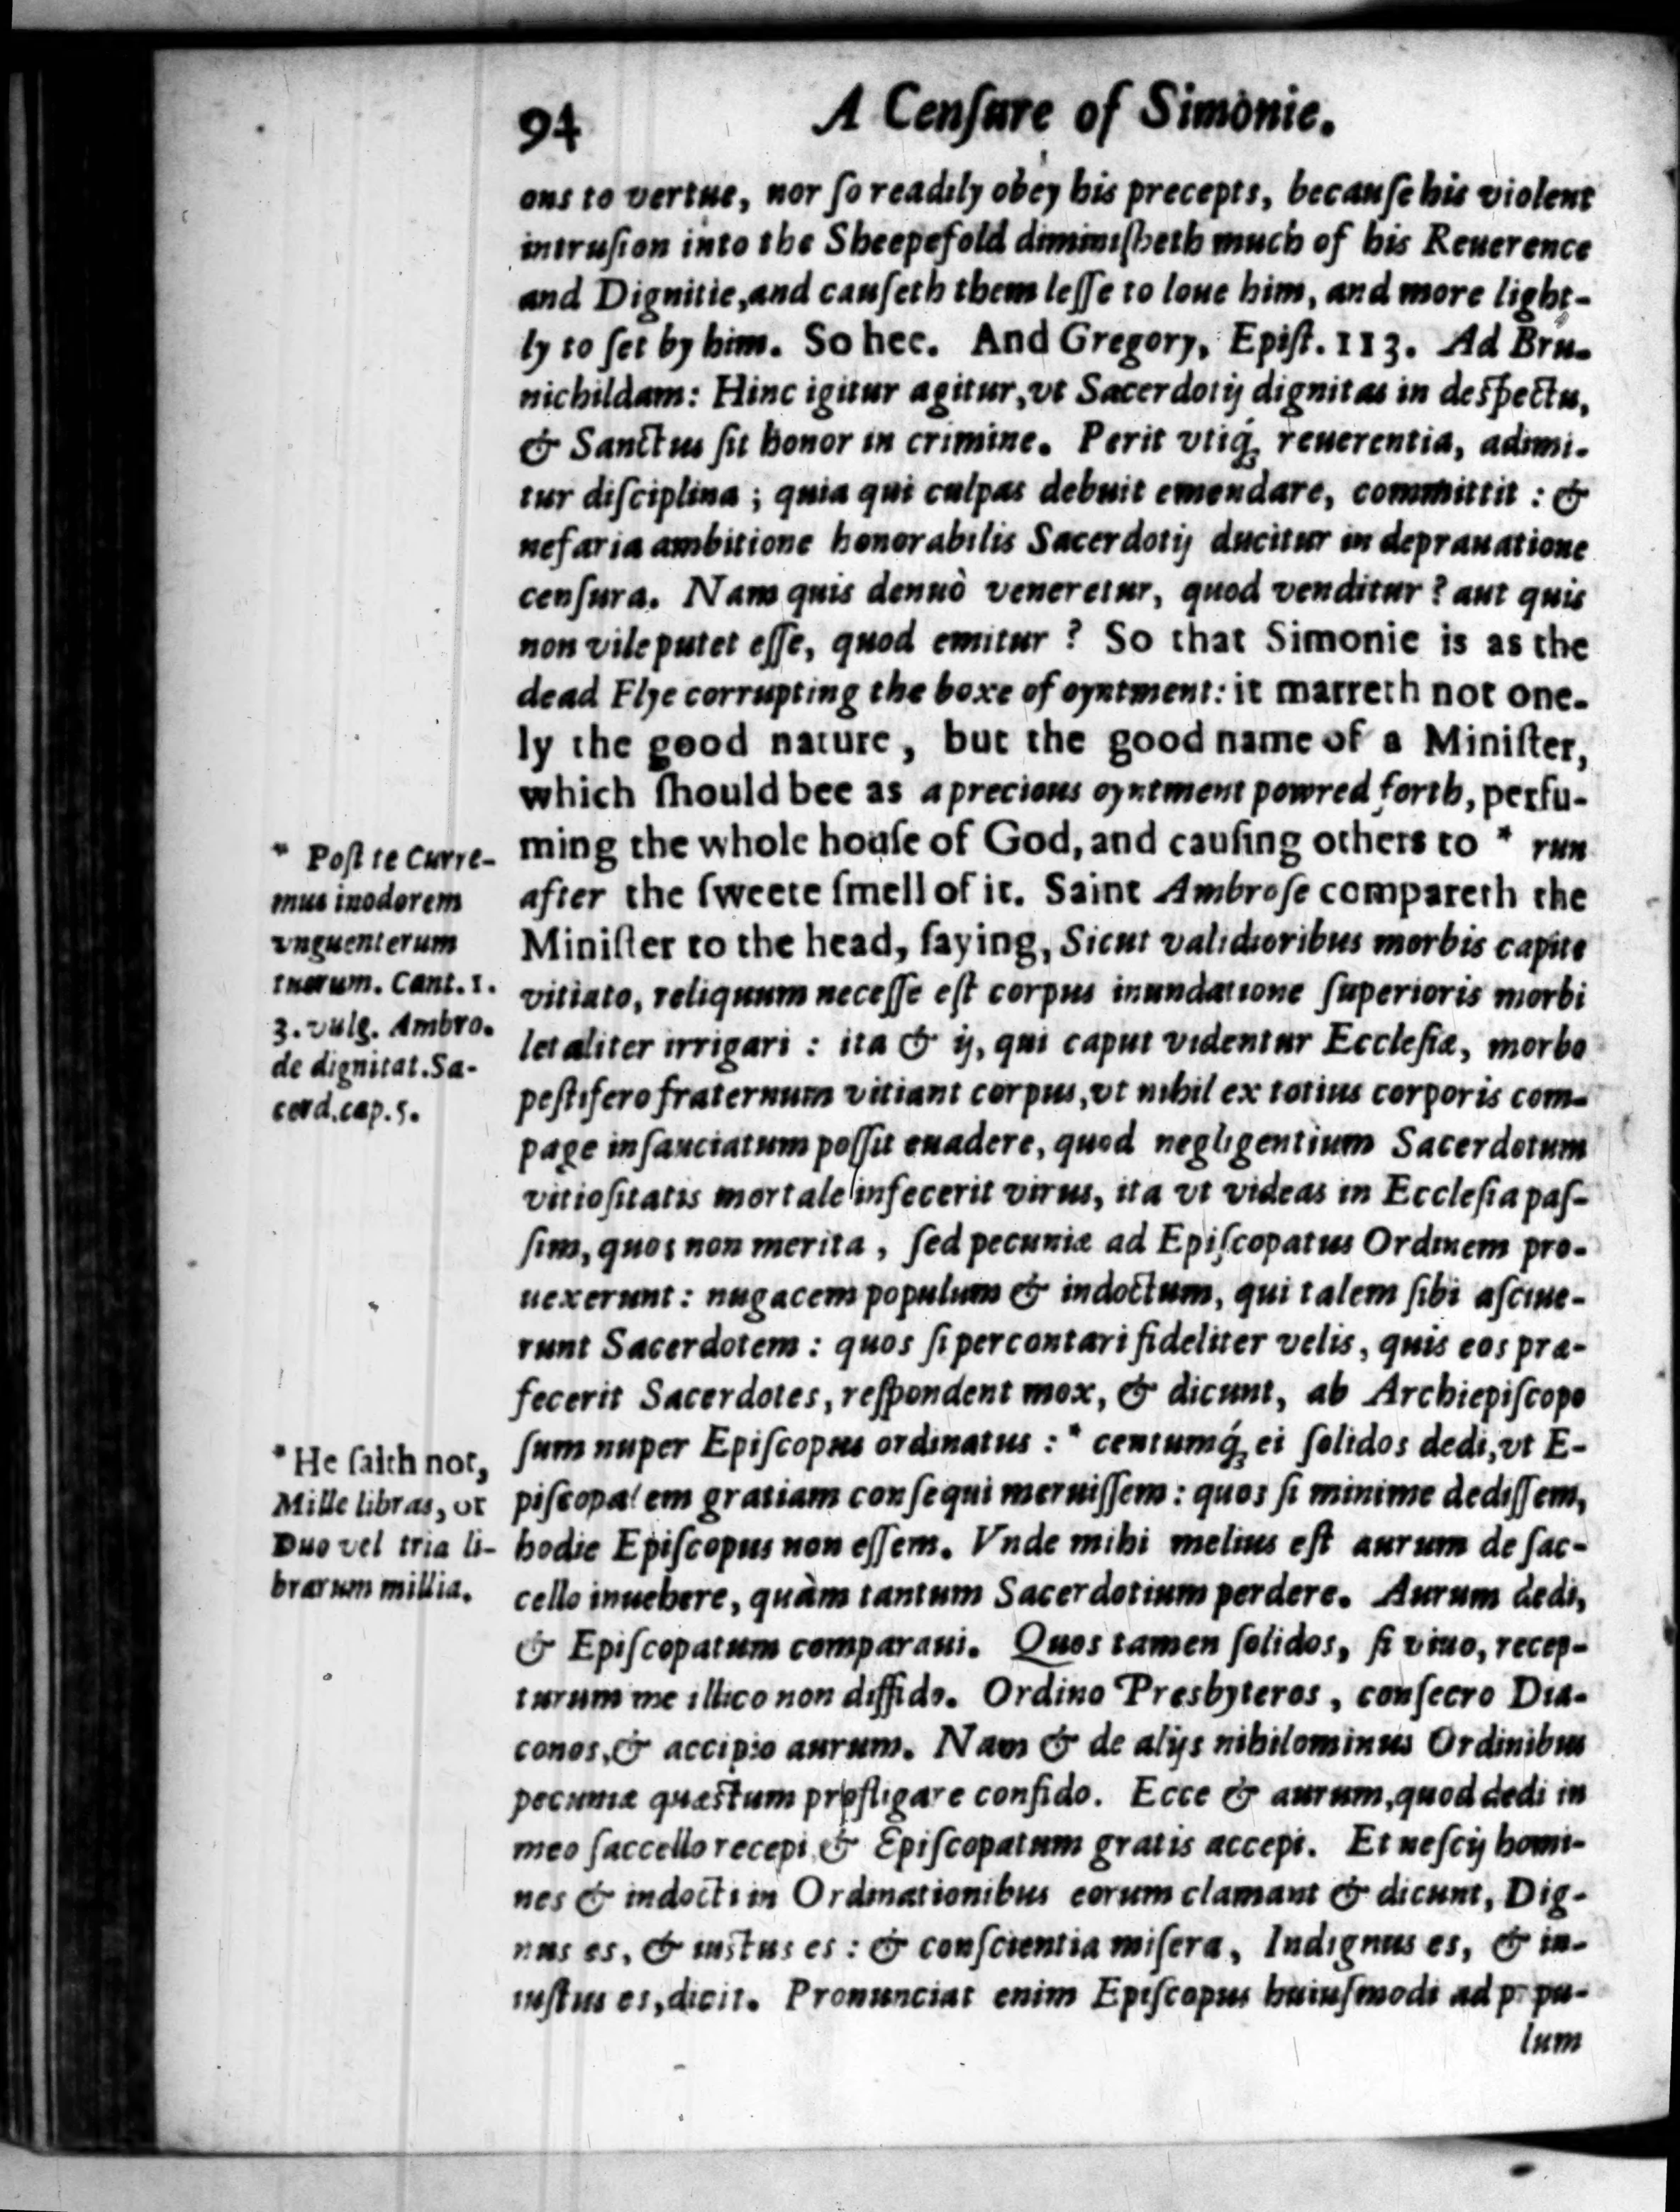 94
A Cenſure of Simonie.
ons to vertue, nor ſo readily obey his precepts, becauſe his violent
intruſion into the Sheepefold diminiſheth much of his Reuerence
and Dignitie, and cauſeth them leſſe to loue him, and more light-
ly to ſet by him. So hee. And Gregory, Epiſt. 113. Ad Bru-
nichildam: Hinc igitur agitur, vt Sacerdotij dignitas in deſpectu,
& Sanctus ſit honor in crimine. Perit vtiq́ꝫ reuerentia, adimi-
tur diſciplina ; quia qui culpas debuit emendare, committit : &
nefaria ambitione honorabilis Sacerdotij ducitur in deprauatione
cenſura. Nam quis denuò veneretur, quod venditur ? aut quis
non vile putet eſſe, quod emitur ? So that Simonie is as the
dead Flye corrupting the boxe of oyntment: it marreth not one-
ly the good nature, but the good name of a Miniſter,
which ſhould bee as a precious oyntment powred forth, perfu-
ming the whole houſe of God, and cauſing others to * run
after the ſweete ſmell of it. Saint Ambroſe compareth the
Miniſter to the head, ſaying, Sicut validioribus morbis capite
vitiato, reliquum neceſſe eſt corpus inundatione ſuperioris morbi
letaliter irrigari : ita & ij, qui caput videntur Eccleſiæ, morbo
peſtifero fraternum vitiant corpus, vt nihil ex totius corporis com-
page inſauciatum poſſit euadere, quod negligentium Sacerdotum
vitioſitatis mortale infecerit virus, ita vt videas in Eccleſia paſ-
ſim, quos non merita, ſed pecuniæ ad Epiſcopatus Ordinem pro-
uexerunt : nugacem populum & indoctum, qui talem ſibi aſciue-
runt Sacerdotem : quos ſi percontari fideliter velis, quis eos præ-
fecerit Sacerdotes, reſpondent mox, & dicunt, ab Archiepiſcopo
ſum nuper Epiſcopus ordinatus : * centumq́ꝫ ei ſolidos dedi, vt E-
piſcopalem gratiam conſequi meruiſſem : quos ſi minime dediſſem,
hodie Epiſcopus non eſſem. Vnde mihi melius eſt aurum de ſac-
cello inuehere, quàm tantum Sacerdotium perdere. Aurum dedi,
& Epiſcopatum comparaui. Quos tamen ſolidos, ſi viuo, recep-
turum me illico non diffido. Ordino Presbyteros, conſecro Dia-
conos, & accipio aurum. Nam & de alijs nihilominus Ordinibus
pecuniæ quæſtum profligare confido. Ecce & aurum, quod dedi in
meo ſaccello recepi & Epiſcopatum gratis accepi. Et neſcij homi-
nes & indocti in Ordinationibus eorum clamant & dicunt, Dig-
nus es, & iuſtus es : & conſcientia miſera, Indignus es, & in-
iuſtus es, dicit. Pronunciat enim Epiſcopus huiuſmodi ad popu-
lum
* Poſt te Curre-
mus in odorem
vnguentorum
tuorum. Cant. 1.
3. vulg. Ambro.
de dignitat. Sa-
cerd. cap. 5.
* He ſaith not,
Mille libras, or
Duo vel tria li-
brarum millia.